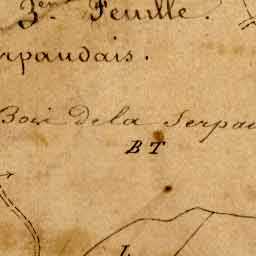 3.e Feuille.
rpaudais.
Bois de la Serpau
B T
L